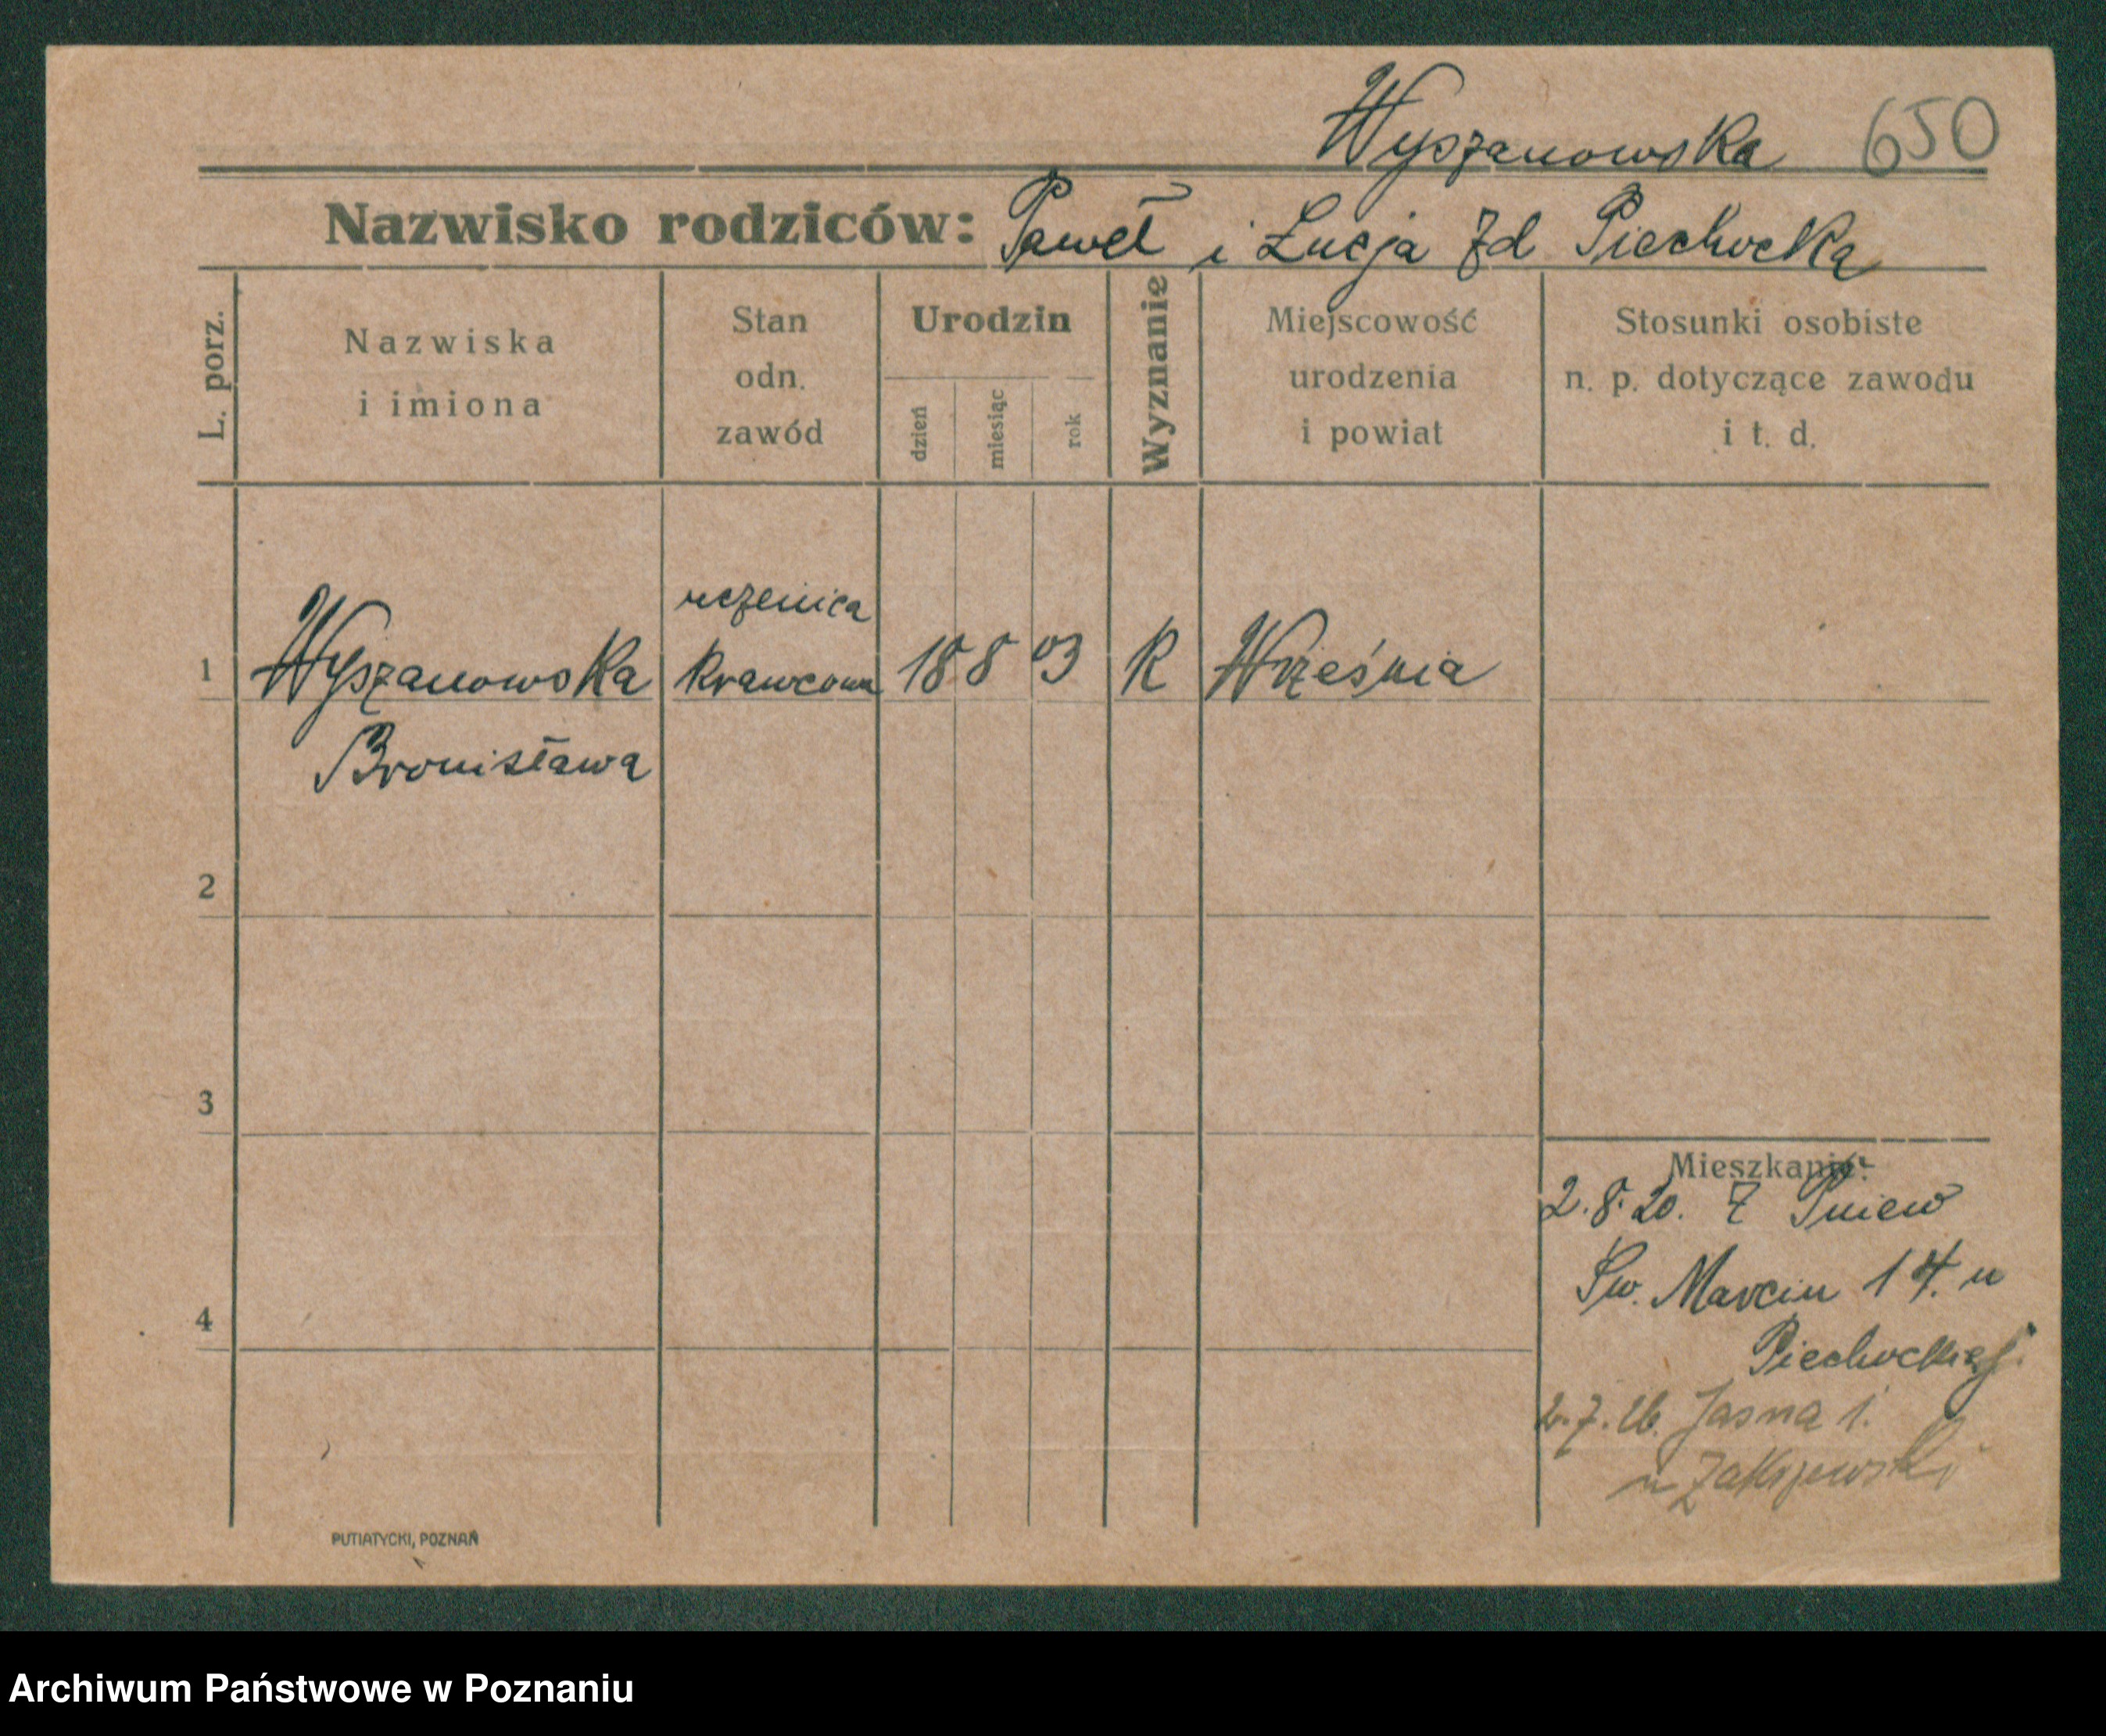 Wyszanowska 650
Nazwisko rodziców: Paweł i Łucja zd Piechocka
L. porz.
Nazwiska
i imiona
Stan
odn.
zawód
Urodzin
dzień
miesiąc
rok
Wyznanie
Miejscowość
urodzenia
i powiat
Stosunki osobiste
n. p. dotyczące zawodu
i t. d.
uczenica
1 Wyszanowska krawcowa 18 8 03 K Września
Bronisława
2
3
4
Mieszkanie:
2.8.20. z Pniew
Św. Marcin 14. u
Piechockiej.
2.7.26. Jasna 1.
u Zakrzewski
PUTIATYCKI, POZNAŃ
Archiwum Państwowe w Poznaniu